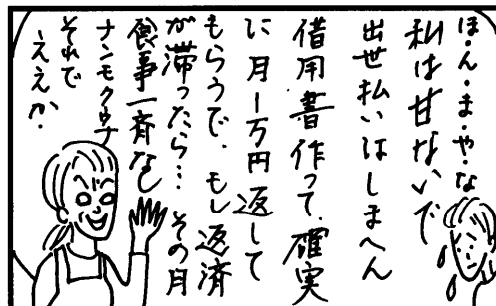 ほ・ん・ま・や・な
私は甘ないで
出世払いはしまへん
借用書作って、確実
に月1万円返して
もらうで、もし返済
が滞ったら…その月
食事一斉なし
ナンモクウナ
それで
ええか.